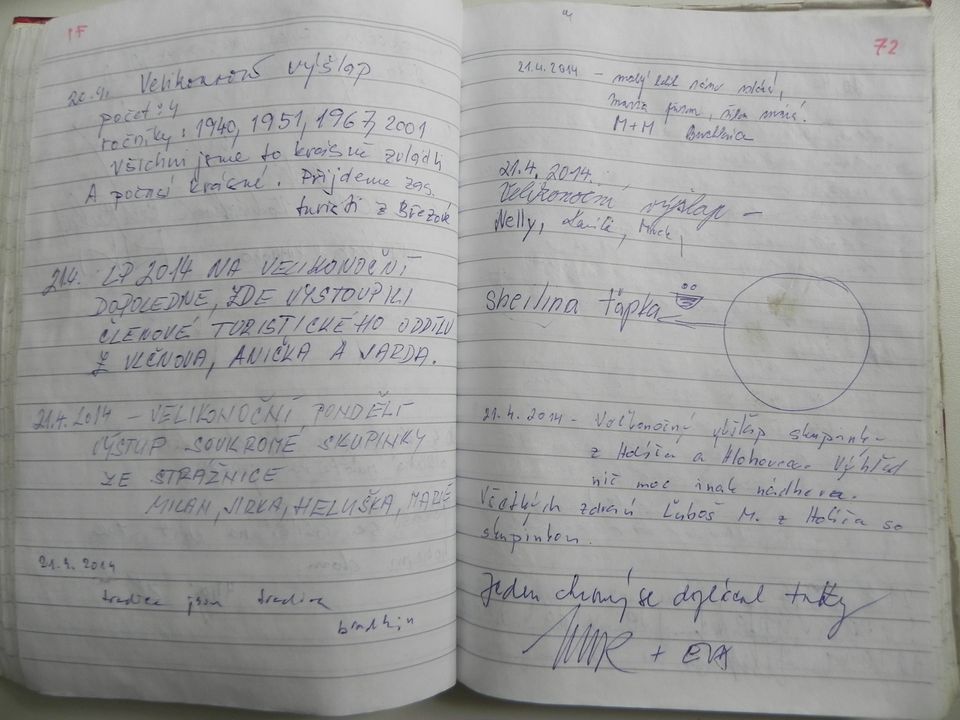 20.4. Velikonoční výšlap
počet: 4
ročníky: 1940, 1951, 1967, 2001
Všichni jsme to krásně zvládli
A počasí krásné. Přijdeme zas.
turisti z Březové
21.4. LP 2014 NA VELIKONOČNÍ
DOPOLEDNE, ZDE VYSTOUPILI
ČLENOVÉ TURISTICKÉHO ODDÍLU
Z VLČNOVA, ANIČKA A JARDA.
21.4.2014 - VELIKONOČNÍ PONDĚLÍ
VÝSTUP SOUKROMÉ SKUPINKY
ZE STRÁŽNICE
MILAN, JIRKA, HELUŠKA, MARIE
21.4.2014
tradice jsou tradice
72
21.4.2014 -
M+M
21.4.2014.
Velikonoční výšlap -
Nelly,
sheilina ťapka
21.4.2014 - Veľkonočný výšľap skupinky
z Holíča a Hlohovca. Výhľad
nič moc inak nádhera.
Všetkých zdraví Ľuboš M. z Holíča so
skupinkou.
Jeden chromý se doplácal taky
+ EVA